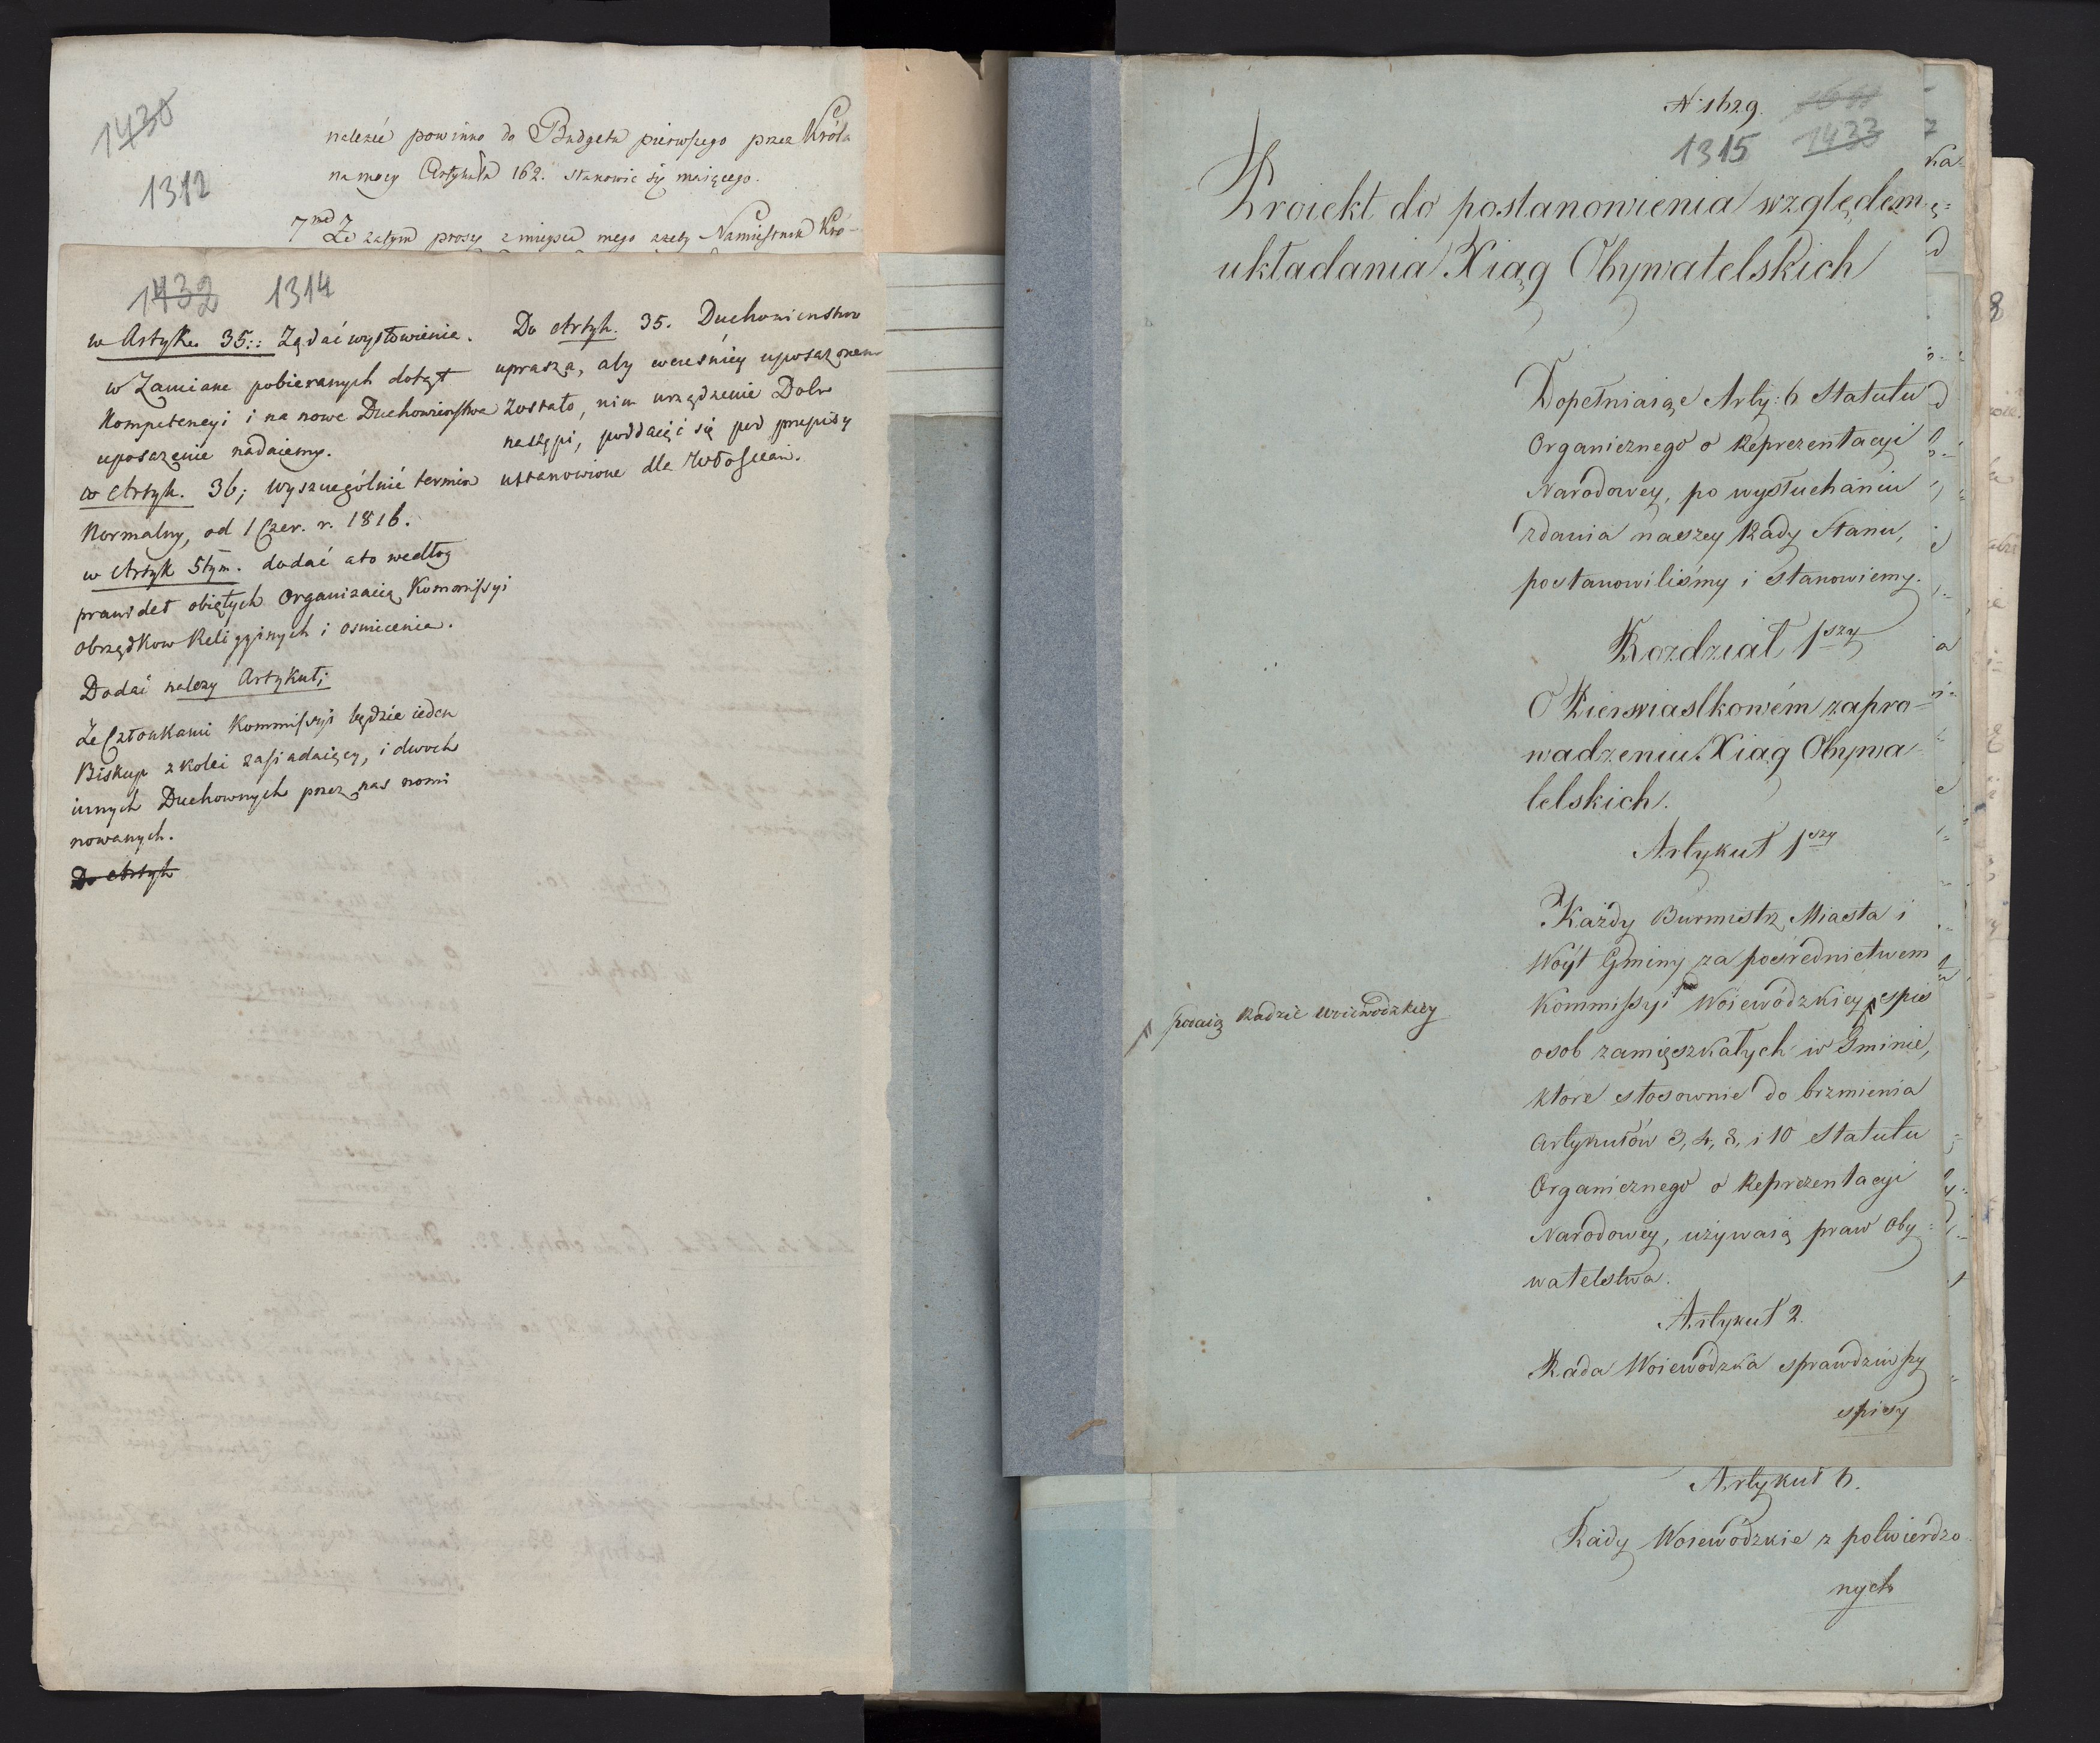 1430
1312
należeć powinno do Budgetu pierwszego przez Króla
na mocy Artykułu 162. stanowić się maiącego.
7mo Że zatym proszę z mieysca mego ażeby Namiestnik Kró-
1432 1314
w Artyk. 35:: Żądać wysłowienia.
w Zamianę pobieranych dotąd
Kompetencyi i na nowe Duchowieństwa
uposażenie nadaiemy.
w Artyk. 36; wyszczególnić termin
Normalny, od 1 Czer. r. 1816.
w Artyk 5tym. dodać a to według
prawideł obiętych Organizacią Kommissyi
obrządkow Religyinych i oswiecenia.
Dodać należy Artykuł;
Że Członkami Kommissyi będzie ieden
Biskup z kolei zasiadaiący, i dwoch
innych Duchownych przez nas nomi
nowanych.
Do Artyk
Do Artyk. 35. Duchowienstwo
uprasza, aby wcześniey uposażonem
zostało, nim urządzenie Dobr
nastąpi, poddaiąc się pod przepisy
ustanowione dla Włościan.
N. 1629.
1315 1433
Proiekt do postanowienia względem
układania Xiąg Obywatelskich
Dopełniaiąc Arty: 6 Statutu
Organicznego o Reprezentacyi
Narodowey, po wysłuchaniu
zdania naszey Rady Stanu,
postanowiliśmy i stanowiemy.
Rozdział 1szy
O Pierwiastkowém zapro-
wadzeniu Xiąg Obywa-
telskich.
Artykuł 1szy
Każdy Burmistrz Miasta i
Woyt Gminy za pośrednictwem
Kommissyi Woiewódzkiey spis
podaią Radzie Woiewodzkiey
osob zamięszkałych w Gminie,
ktore stosownie do brzmienia
Artykułów 3, 4, 8, i 10 Statutu
Organicznego o Reprezentacyi
Narodowey, używaią praw Oby-
watelstwa.
Artykuł 2.
Rada Woiewódzka sprawdziwszy
spisy
Artykuł 6.
Rady Woiewódzkie z potwierdzo
nych